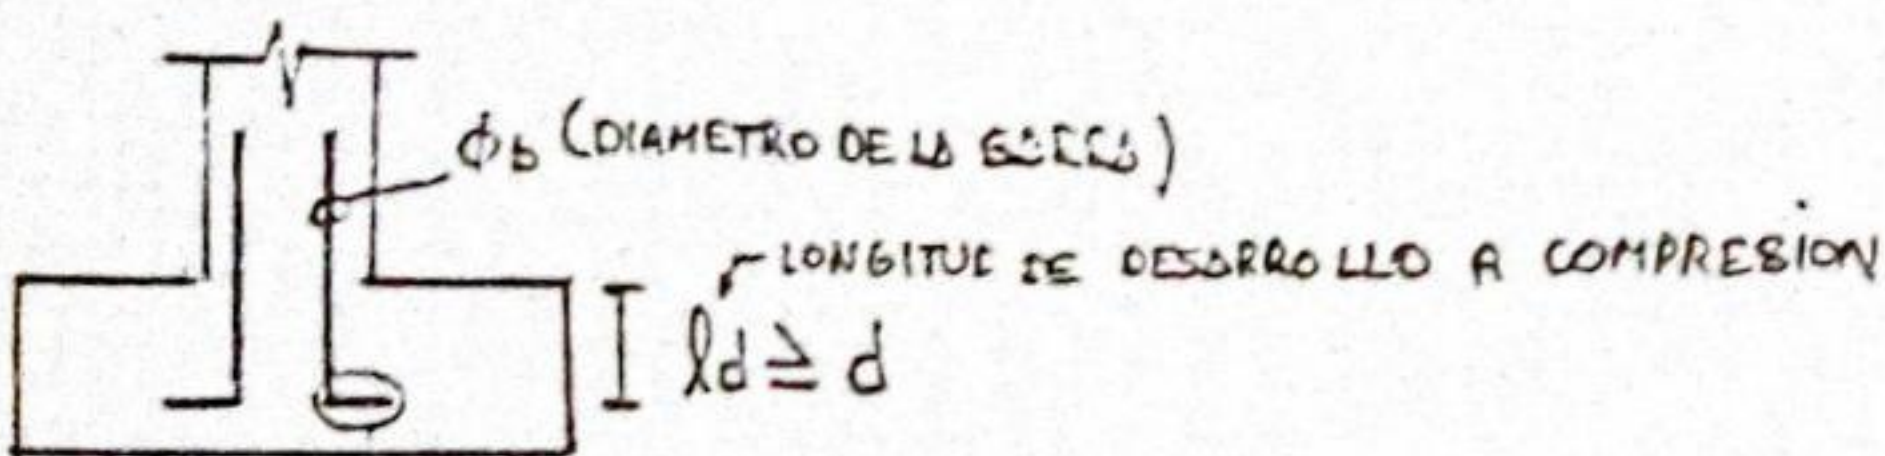 ϕb (DIAMETRO DE LA
LONGITUD DE DESARROLLO A COMPRESION
ld ≥ d